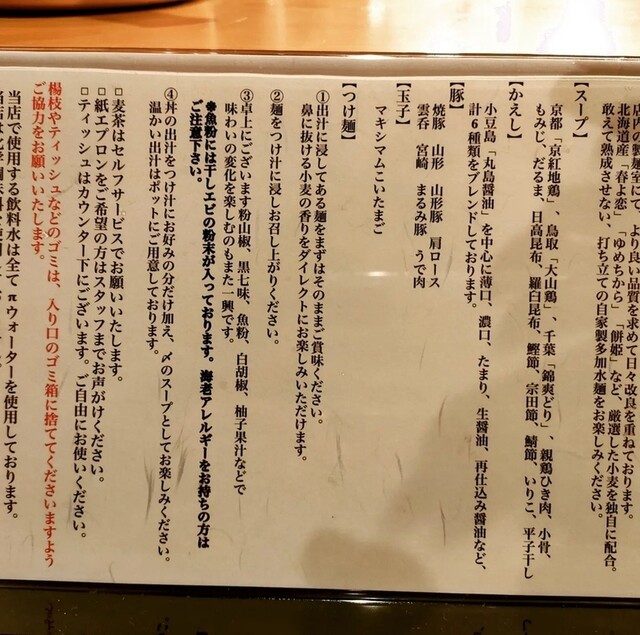 店内製麺室にて、より良い品質を求めて日々改良を重ねております。
北海道産「春よ恋」「ゆめちから」「餅姫」など、厳選した小麦を独自に配合。
敢えて熟成させない、打ち立ての自家製多加水麺をお楽しみください。
【スープ】
京都「京紅地鶏」、鳥取「大山鶏」、千葉「錦爽どり」、親鶏ひき肉、小骨、
もみじ、だるま、日高昆布、羅臼昆布、鰹節、宗田節、鯖節、いりこ、平子干し
【かえし】
小豆島「丸島醤油」を中心に薄口、濃口、たまり、生醤油、再仕込み醤油など、
計6種類をブレンドしております。
【豚】
焼豚 山形 山形豚 肩ロース
雲呑 宮崎 まるみ豚 うで肉
【玉子】
マキシマムこいたまご
【つけ麺】
①出汁に浸してある麺をまずはそのままご賞味ください。
鼻に抜ける小麦の香りをダイレクトにお楽しみいただけます。
②麺をつけ汁に浸しお召し上がりください。
③卓上にございます粉山椒、黒七味、魚粉、白胡椒、柚子果汁などで
味わいの変化を楽しむのもまた一興です。
※魚粉には干しエビの粉末が入っております。海老アレルギーをお持ちの方は
ご注意下さい。
④丼の出汁をつけ汁にお好みの分だけ加え、〆のスープとしてお楽しみください。
温かい出汁はポットにご用意しております。
□麦茶はセルフサービスでお願いいたします。
□紙エプロンをご希望の方はスタッフまでお声がけください。
□ティッシュはカウンター下にございます。ご自由にお使いください。
楊枝やティッシュなどのゴミは、入り口のゴミ箱に捨ててくださいますよう
ご協力をお願いいたします。
当店で使用する飲料水は全てπウォーターを使用しております。